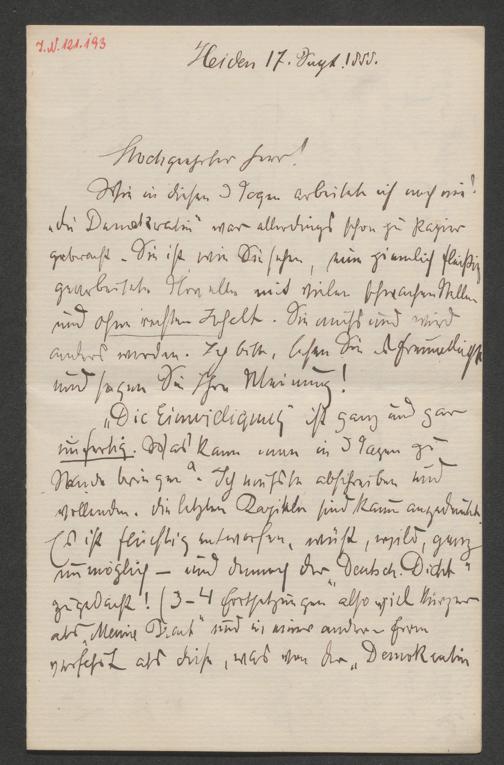 J.N. 121.193
Heiden 17. Sept. 1888.
Hochgeehrter Herr!
Wie in diesen 3 Tagen arbeitete ich noch nie!
„Die Demokratin" war allerdings schon zu Papier
gebracht. Sie ist wie Sie sehen, eine ziemlich fleißig
gearbeitete Novelle mit vielen schwachen Stellen
und ohne rechten Inhalt. Sie muß und wird
anders werden. Ich bitte, lesen Sie sie freundlichst
und sagen Sie Ihre Meinung!
„Die Einwilligung" ist ganz und gar
unfertig. Was kann man in 3 Tagen zu
Stande bringen? Ich müßte abschreiben und
vollenden. Die letzten Kapiteln sind kaum angedeutet.
Es ist flüchtig entworfen, wüst, wild, ganz
unmöglich — und dennoch der „Deutsch. Dicht"
zugedacht! (3-4 Fortsetzungen also viel kürzer
als „Meine Braut" und in einer anderen Form
verfaßt als diese, was von der „Demokratin